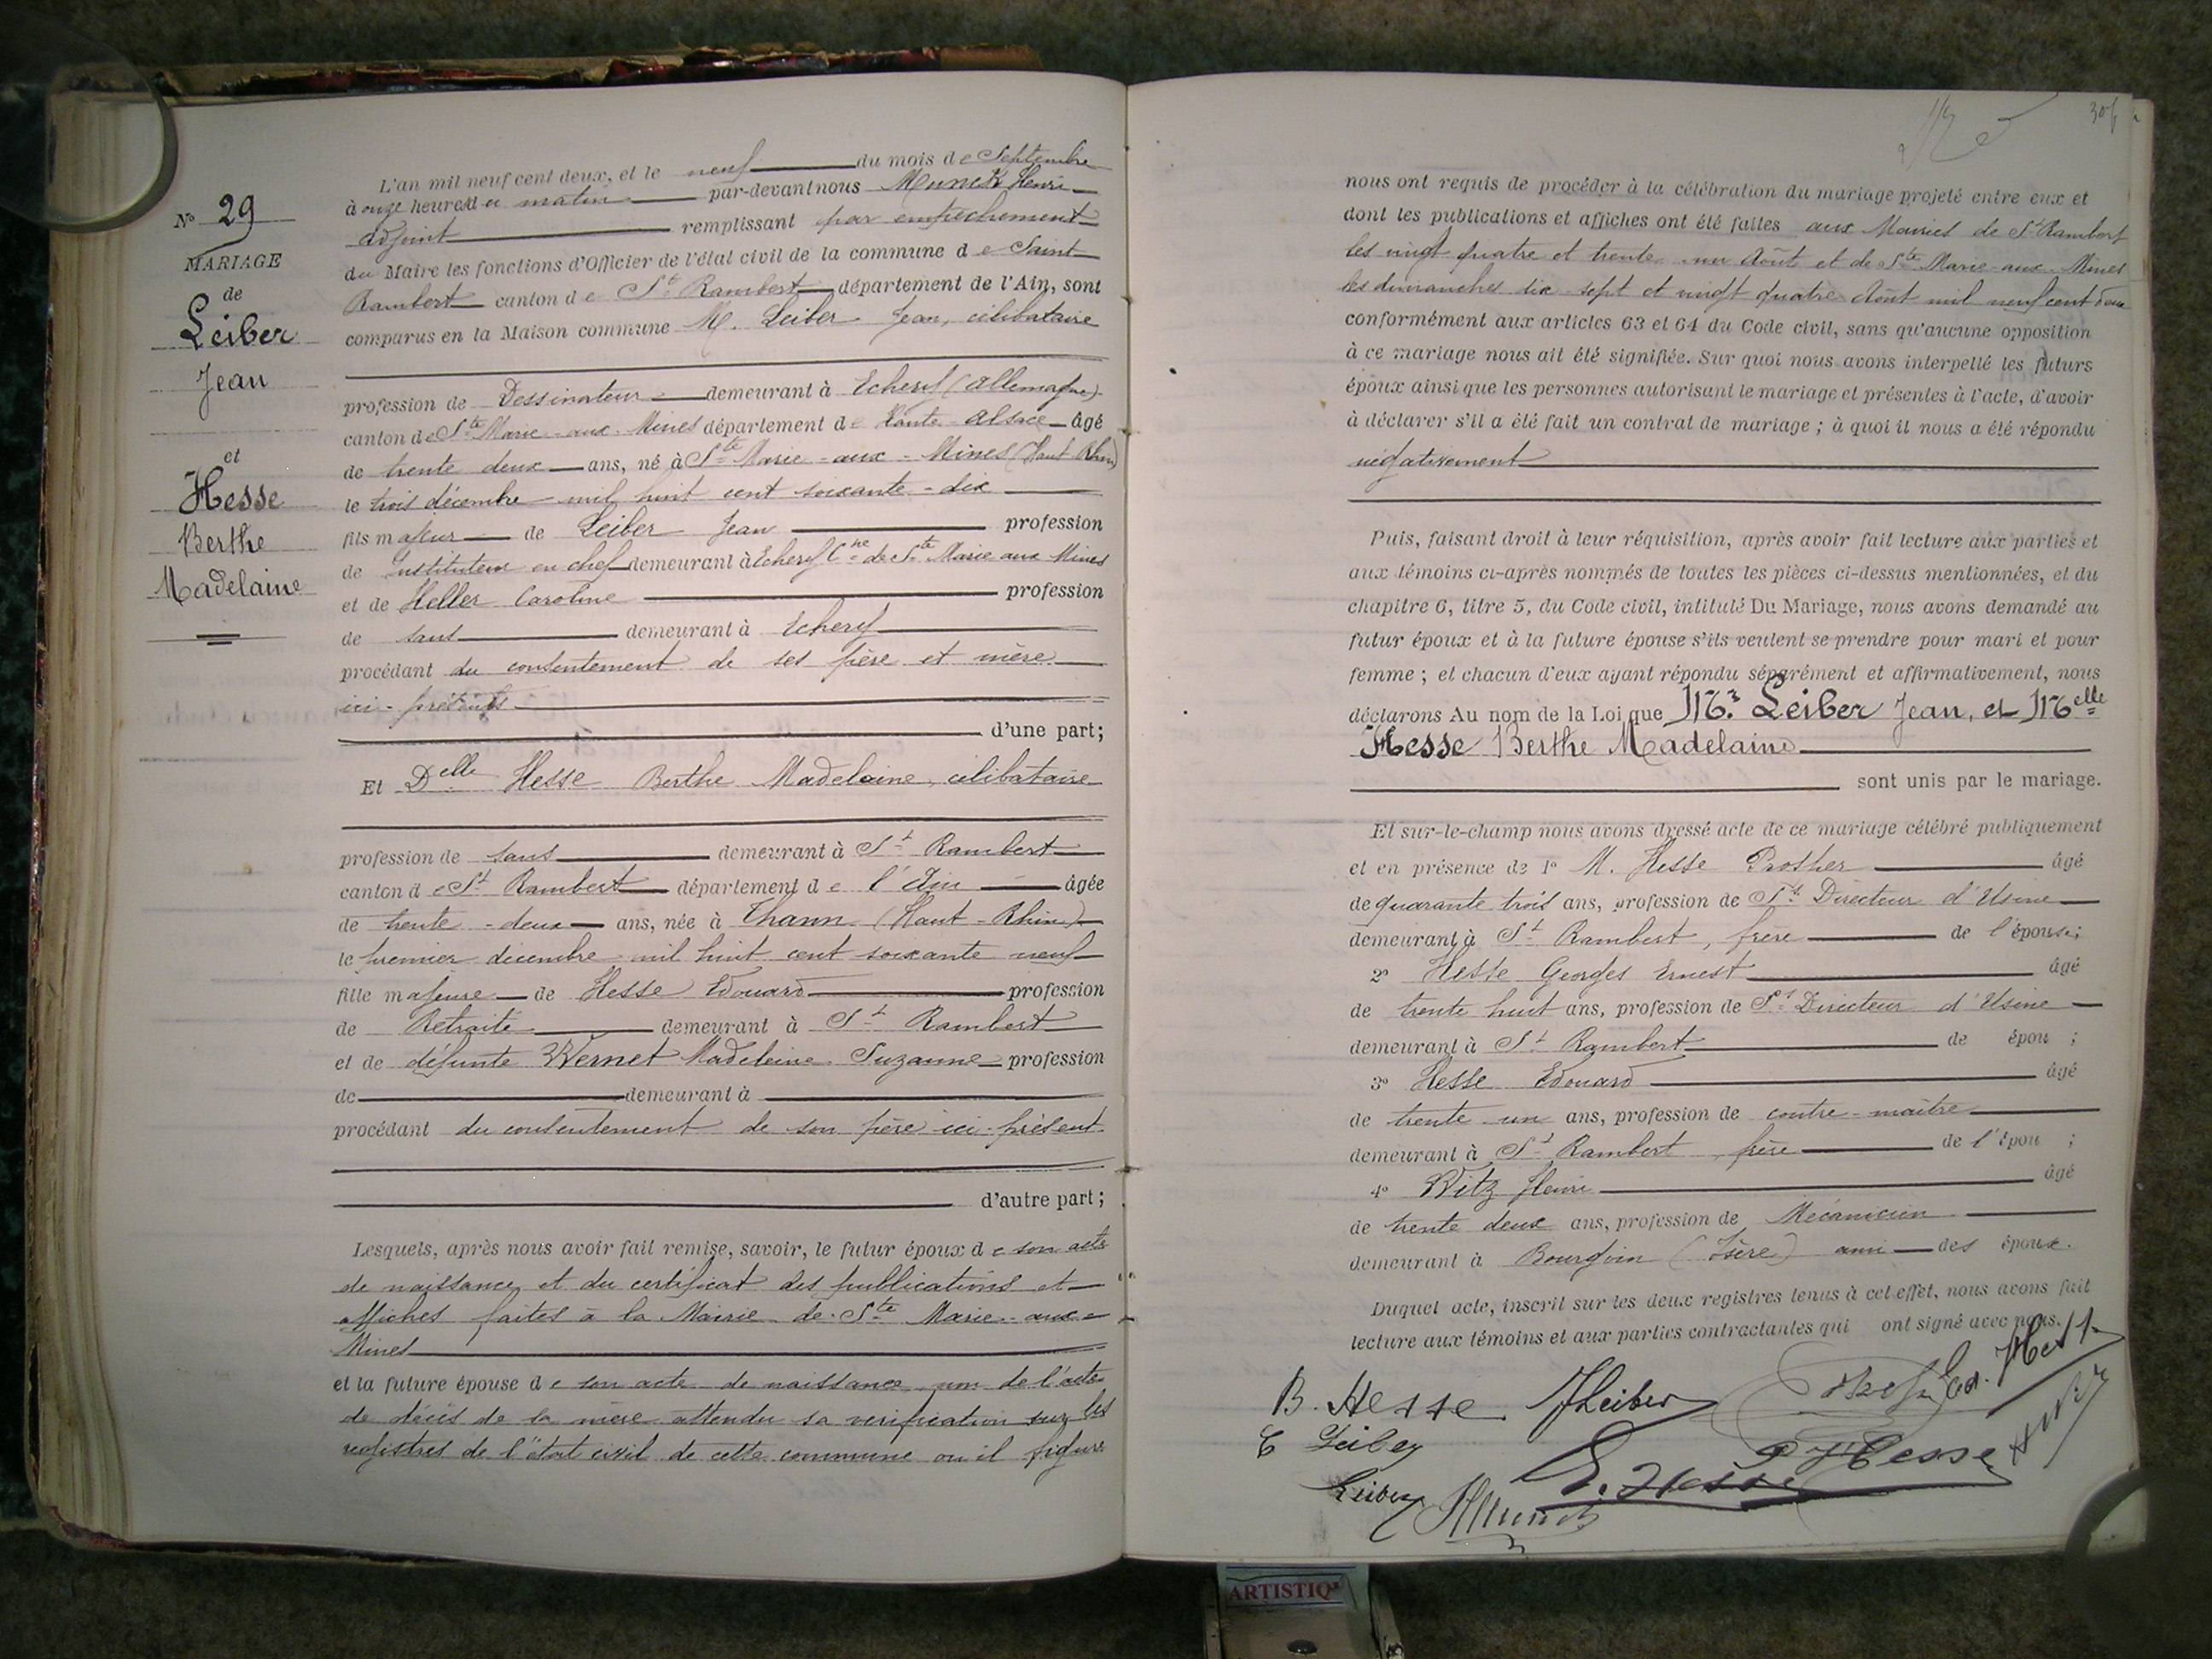 N° 29
MARIAGE
de
Leiber
Jean
et
Hesse
Berthe
Madelaine
L'an mil neuf cent deux, et le neuf du mois de Septembre
à onze heures du matin par-devant nous Munck Henri
adjoint remplissant par empêchement
du Maire les fonctions d'Officier de l'état civil de la commune de Saint
Rambert canton de St Rambert département de l'Ain, sont
comparus en la Maison commune M. Leiber Jean, célibataire
profession de Dessinateur demeurant à Echery (Allemagne)
canton de Ste Marie-aux-Mines département de Haute-Alsace âgé
de trente deux ans, né à Ste Marie-aux-Mines (Haut Rhin)
le trois décembre mil huit cent soixante-dix
fils majeur de Leiber Jean profession
de Instituteur en chef demeurant à Echery Cne de Ste Marie aux Mines
et de Heller Caroline profession
de sans demeurant à Echery
procédant du consentement de ses père et mère
ici-présents
d'une part;
Et Delle Hesse Berthe Madelaine, célibataire
profession de sans demeurant à St Rambert
canton de St Rambert département de l'Ain âgée
de trente-deux ans, née à Thann (Haut-Rhin)
le premier décembre mil huit cent soixante neuf
fille majeure de Hesse Edouard profession
de Retraité demeurant à St Rambert
et de défunte Wernet Madeleine Suzanne profession
de demeurant à
procédant du consentement de son père ici-présent
d'autre part;
Lesquels, après nous avoir fait remise, savoir, le futur époux de son acte
de naissance et du certificat des publications et
affiches faites à la Mairie de Ste Marie-aux-
Mines
et la future épouse de son acte de naissance, non de l'acte
de décès de sa mère attendu sa verification sur les
registres de l'état civil de cette commune ou il figure
305
nous ont requis de procéder à la célébration du mariage projeté entre eux et
dont les publications et affiches ont été faites aux Mairies de St Rambert
les vingt quatre et trente un Août et de Ste Marie-aux-Mines
les dimanches dix-sept et vingt quatre Août mil neuf cent deux
conformément aux articles 63 et 64 du Code civil, sans qu'aucune opposition
à ce mariage nous ait été signifiée. Sur quoi nous avons interpellé les futurs
époux ainsi que les personnes autorisant le mariage et présentes à l'acte, d'avoir
à déclarer s'il a été fait un contrat de mariage ; à quoi il nous a été répondu
négativement
Puis, faisant droit à leur réquisition, après avoir fait lecture aux parties et
aux témoins ci-après nommés de toutes les pièces ci-dessus mentionnées, et du
chapitre 6, titre 5, du Code civil, intitulé Du Mariage, nous avons demandé au
futur époux et à la future épouse s'ils veulent se prendre pour mari et pour
femme ; et chacun d'eux ayant répondu séparément et affirmativement, nous
déclarons Au nom de la Loi que Mr. Leiber Jean, et Melle
Hesse Berthe Madelaine
sont unis par le mariage.
Et sur-le-champ nous avons dressé acte de ce mariage célébré publiquement
et en présence de 1° M. Hesse Prosper âgé
de quarante trois ans, profession de St Directeur d'Usine
demeurant à St Rambert, frère de l'épouse;
2° Hesse Georges Ernest âgé
de trente huit ans, profession de St Directeur d'Usine
demeurant à St Rambert de épou ;
3° Hesse Edouard âgé
de trente un ans, profession de contre-maître
demeurant à St Rambert, frère de l'épou ;
4° Witz Henri âgé
de trente deux ans, profession de Mécanicien
demeurant à Bourgoin (Isère) ami des époux.
Duquel acte, inscrit sur les deux registres tenus à cet effet, nous avons fait
lecture aux témoins et aux parties contractantes qui ont signé avec nous.
B. Hesse JLeiber Ed. Hesse
C Leiber P Hesse
Leiber E. Hesse
HMunck
ARTISTIQ